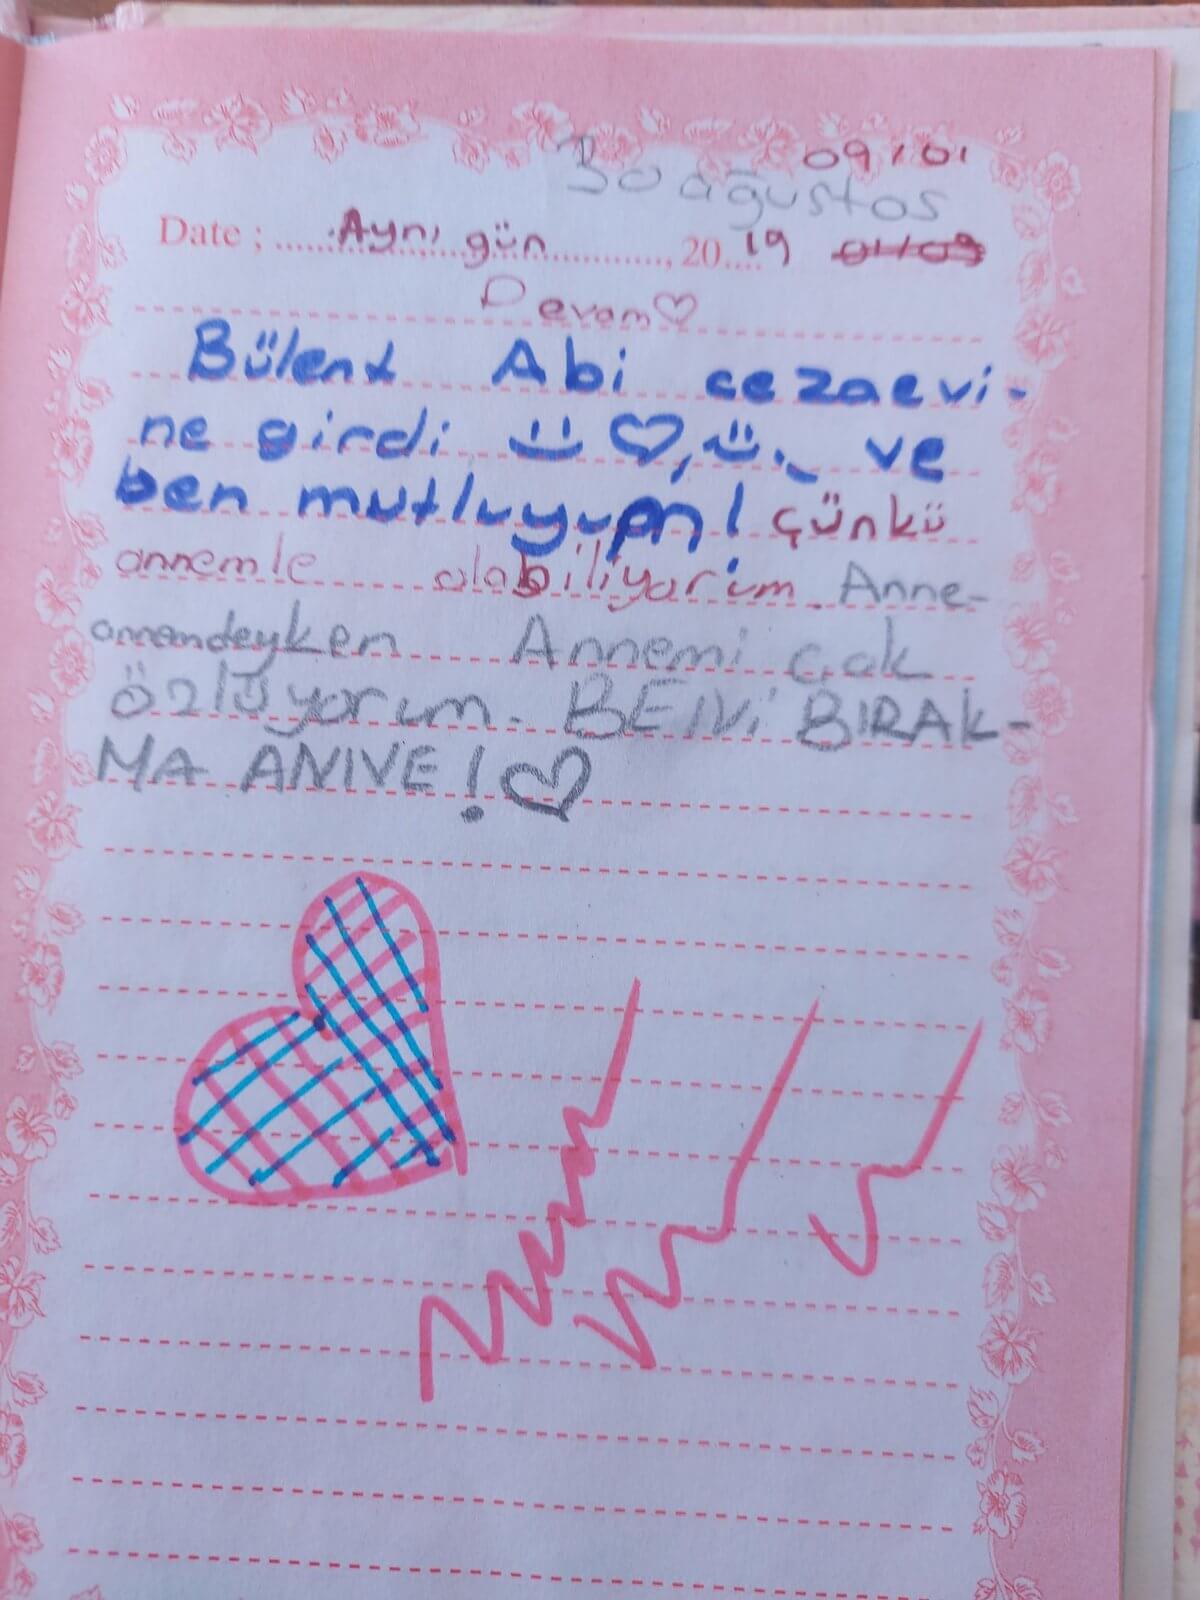 09/01
30 ağustos
Date ; Aynı gün, 20 19 01/09
Devam♡
Bülent Abi cezaevi-
ne girdi ve
ben mutluyum! çünkü
annemle olabiliyorum. Anne-
annemdeyken Annemi çok
özlüyorum. BENİ BIRAK-
MA ANNE! ♡